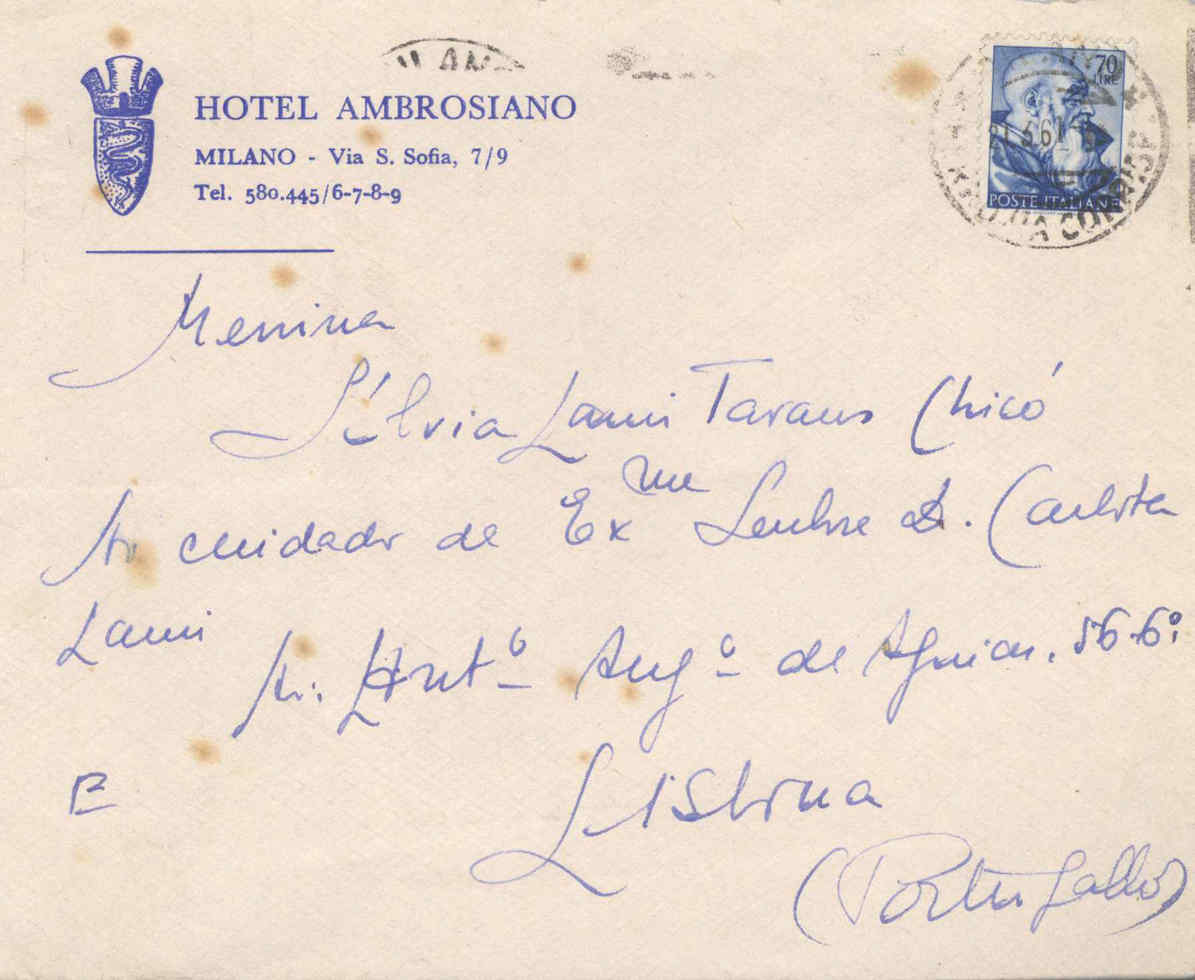 HOTEL AMBROSIANO
MILANO - Via S. Sofia, 7/9
Tel. 580.445/6-7-8-9
70
LIRE
POSTE ITALIANE
Menina
Sílvia Lami Tavares Chicó
Ao cuidado de Exma Senhora D. Carlota
Lami
Av. Antº Augº de Aguiar. 56-6º
Lisboa
(Portugallo)